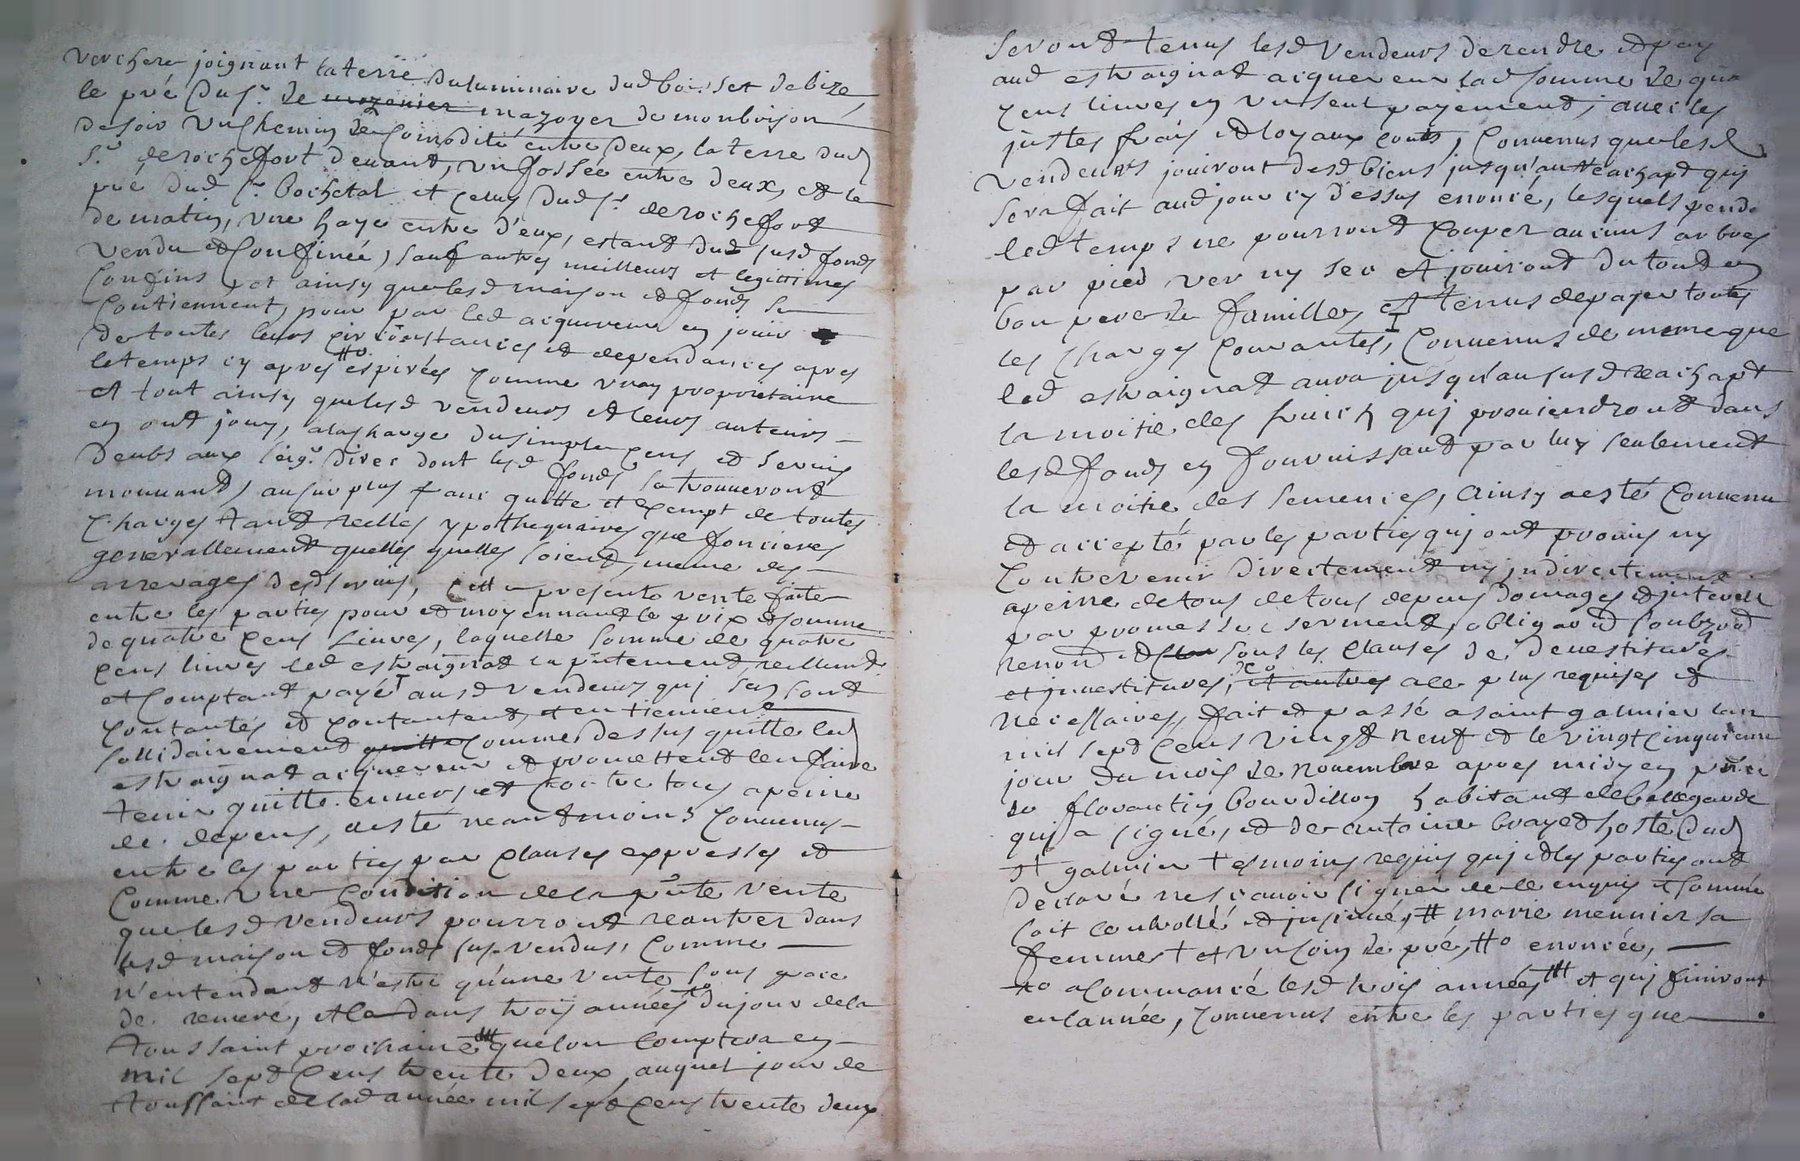 verchere joignant la terre du luminaire dud boisset de bize
le pré du sr. de mazenier mazoyer de monbrison
de soir un chemin de comodité entre deux, la terre dud
sr. de rochefort devant, un fossée entre deux, et le
pré dud sr. bochetal et celuy dud sr. de rochefort
de matin, une haye entre d'eux, estant dud susd fonds
vendu et confinée, sauf autres meilleurs et legitimes
confins et ainsy que lesd maison et fonds se
contiennent, pour par led acquereur en jouir
de toutes leurs circonstances et dependances apres
le temps cy apres espirées comme vray proprietaire
et tout ainsy que lesd vendeurs et leurs auteurs
en ont jouy, a la charge du simple cens et servis
deubs aux seigr. direc dont lesd fonds se trouveront
mouvants, au surplus franc quitte et exempt de toutes
charges tant reelles ypothequaires que foncieres
generallement quelles quelles soient, meme des
arrerages desd servis, cette presente vente faite
entre les parties pour et moyennant le prix et somme
de quatre cens livres, laquelle somme de quatre
cens livres led estraignat a pntement, reellemt
et comptant payé ausd vendeurs qui s'en sont
contantés et contantent, et en tiennent
sollidairement quitte comme dessus quitte led
estraignat acquereur et promettent l'en faire
tenir quitte envers et contre tous a peine
de depens, a esté neantmoins convenus
entre les parties par clauses expresses et
comme une condition de la pnte vente
que lesd vendeurs pourront reantrer dans
lesd maison et fonds sus-vendus, comme
n'entendant n'estre qu'une vente sous grace
de remeré, et la dans trois années to du jour de la
toussaint prochaine # que lon comptera en
mil sept cens trente deux, auquel jour de
toussaint de lad année mil sept cens trente deux
seront tenus lesd vendeurs de rendre et pay
aud estraignat acquereur lad somme de qua
cens livres en un seul payement, avec les
justes frais et loyaux couts, convenus que lesd
vendeurs jouiront desd biens jusqu'au reachapt qui
sera fait aud jour cy dessus enoncé, lesquels penda
led temps ne pourront couper aucuns arbres
par pied ver ny sec et jouiront du tout en
bon pere de famille, et tenus de payer toutes
les charges courantes, convenus de meme que
led estraignat aura jusqu'au susd reachapt
la moitié des fruits qui proviendront dans
lesd fonds en fournissant par luy seulement
la moitié des semences, ainsy a esté convenu
et accepté par les parties qui ont promis ny
contrevenir directement ny indirectement
a peine de tous de tous depens domages et interest
par promesse serment, obligaon soubzmon
renon et clau sous les clauses de devestitures
et investitures, et autres a ce plus requises et
necessaires, fait et passé a saint galmier lan
mil sept cens vingt neuf et le vingt cinquieme
jour du mois de novembre apres midy en pnce
de florantin bourdillon habitant de bellegarde
qui a signé, et de antoine brayed hoste dud
st galmier tesmoins requis qui et les parties ont
declaré ne scavoir signer de ce enquis et sommé
soit controllé et insinué, # marie meunier sa
femme + et un coin de pré, #o enoncée,
to a commancé lesd trois années ## et qui finiront
en l'année, convenus entre les parties que